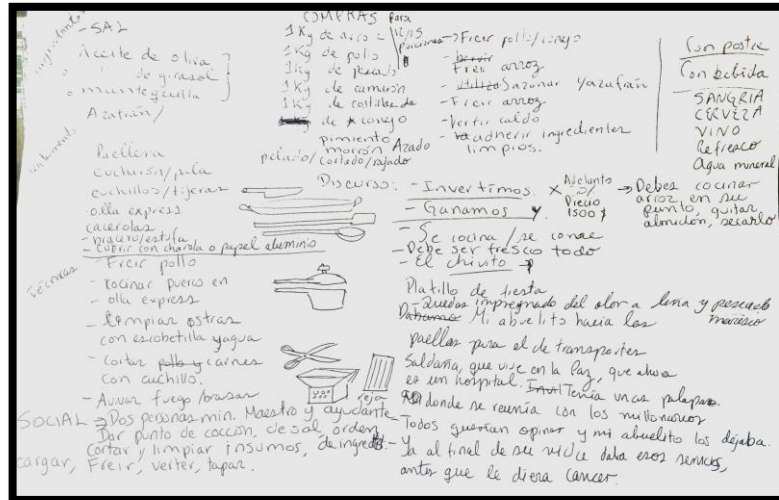 ingredientes
- SAL
Aceite de oliva
" de girasol
o mantequilla
Azafrán/
Paellera
cucharón/pala
cuchillos/tijeras
olla express
cacerolas
- bracero/estufa
- Cubrir con charola o papel aluminio
Técnicas
- Freir pollo
- cocinar puerco en
olla express
- Limpiar ostras
con escobetilla y agua
- Cortar pollo y carnes
con cuchillo.
- Avivar fuego/brasas
reja
SOCIAL → Dos personas min. Maestro y ayudante
Dar punto de cocción, de sal, orden,
Cortar y limpiar insumos, de
cargar, Freir, verter, tapar.
COMPRAS para
1 Kg de arroz = 12/15 porciones
1 Kg de pollo
1 Kg de pescado
1 Kg de camarón
1 Kg de costilla de
de conejo
pimiento
morrón Azado
pelado/cortado/rajado
→ Freir pollo/conejo
- Freir arroz
- Sazonar y azafrán
- Freir arroz
- Vertir caldo
- adherir ingredientes
limpios.
Con postre
Con bebida
- SANGRIA
CERVEZA
VINO
Refresco
Agua mineral
Discurso: - Invertimos x Adelanto
Ganamos y. Precio
1500 $
→ Debes cocinar
arroz en su
punto, quitar
almidón, secarlo
- Se cocina / se come
- Debe ser fresco todo
- El chivito →
Platillo de fiesta
- Quedas impregnado del olor a leña y pescado
marisco
Mi abuelito hacia las
paellas para el de transportes
Saldaña, que vive en la Paz, que ahora
es un hospital. Tenía unas palapas
donde se reunía con los millonarios
- Todos querían opinar y mi abuelito los dejaba.
- Ya al final de su daba esos servicios,
antes que le diera cancer.